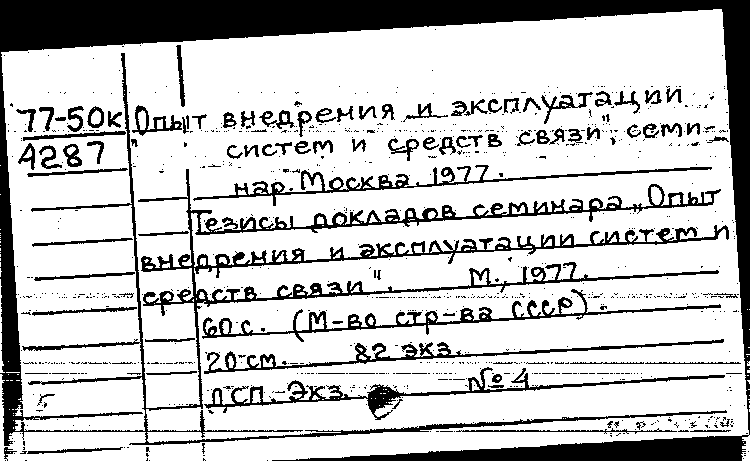 77-50к
4287
„Опыт внедрения и эксплуатации
систем и средств связи", семи-
нар. Москва. 1977.
Тезисы докладов семинара „Опыт
внедрения и эксплуатации систем и
средств связи". М., 1977.
60 с. (М-во стр-ва СССР).
20 см. 82 экз.
ДСП. Экз. № 4
5